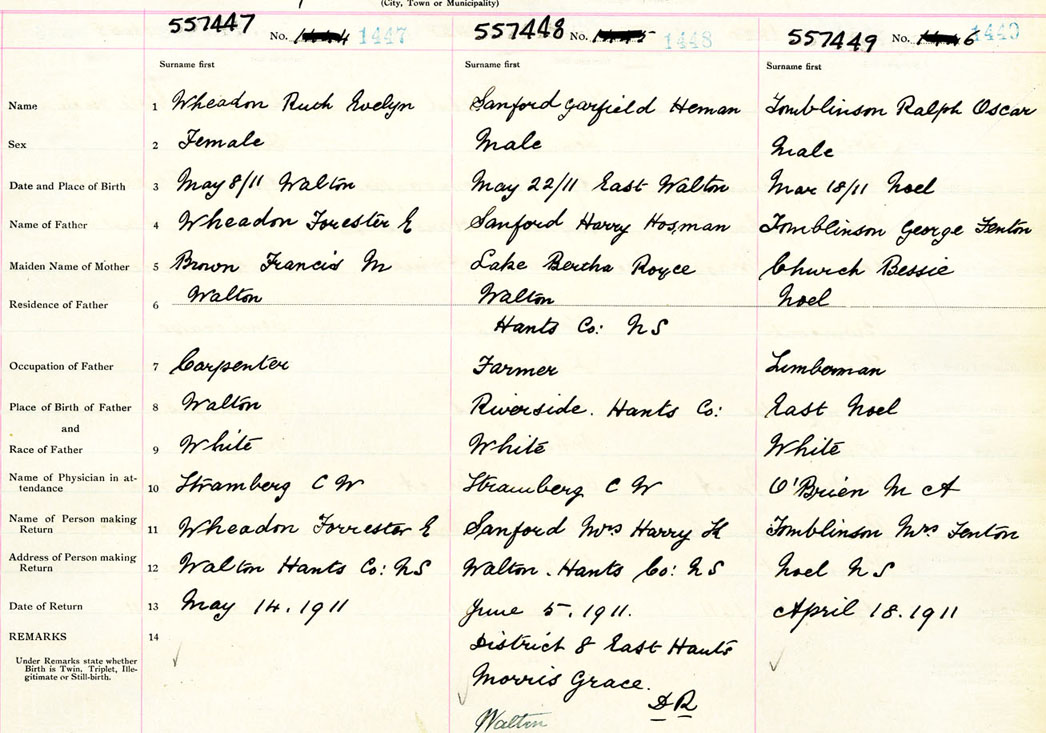 (City, Town or Municipality)
557447 No. 1447 557448 No. 1448 557449 No. 6 1449
Surname first Surname first Surname first
Name 1 Wheadon Ruth Evelyn Sanford Garfield Heman Tomblinson Ralph Oscar
Sex 2 Female Male Male
Date and Place of Birth 3 May 8/11 Walton May 22/11 East Walton Mar 18/11 Noel
Name of Father 4 Wheadon Forester E Sanford Harry Hosman Tomblinson George Fenton
Maiden Name of Mother 5 Brown Francis M Lake Bertha Royce Church Bessie
Residence of Father 6 Walton Walton Noel
Hants Co: NS
Occupation of Father 7 Carpenter Farmer Lumberman
Place of Birth of Father 8 Walton Riverside. Hants Co: East Noel
and
Race of Father 9 White White White
Name of Physician in at-
tendance 10 Stramberg C W Stramberg C W O'Brien M A
Name of Person making
Return 11 Wheadon Forrester E Sanford Mrs Harry H Tomblinson Mrs Fenton
Address of Person making
Return 12 Walton Hants Co: NS Walton. Hants Co: NS Noel NS
Date of Return 13 May 14. 1911 June 5. 1911. April 18. 1911
REMARKS 14 District 8 East Hants
Under Remarks state whether
Birth is Twin, Triplet, Ille-
gitimate or Still-birth.
Morris Grace.
DR
Walton